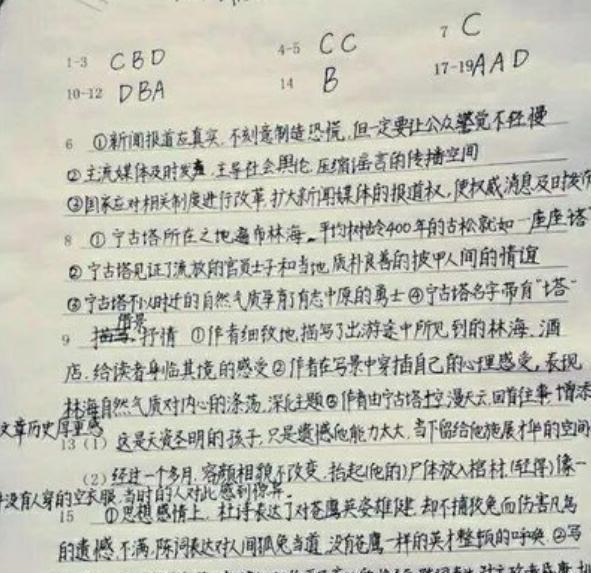 1-3 CBD 4-5 CC 7 C
10-12 DBA 14 B 17-19 AAD
6 ①新闻报道应真实,不刻意制造恐慌,但一定要让公众警觉不轻慢
②主流媒体及时发声,主导社会舆论,压缩谣言的传播空间
③国家应对相关制度进行改革,扩大新闻媒体的报道权,使权威消息及时发布
8 ①宁古塔所在之地遍布林海,平均树龄400年的古松就如一座座塔
②宁古塔见证了流放的官员士子和当地质朴良善的披甲人间的情谊
③宁古塔不以时迁的自然气质孕育了有志中原的勇士④宁古塔名字带有“塔”
借景
9 抒情 ①作者细致地描写了出游途中所见到的林海、酒
店,给读者身临其境的感受②作者在写景中穿插自己的心理感受,表现
林海自然气质对内心的涤荡,深化主题③作者由宁古塔 漫天云,回首往事,增添
文章历史厚重感
13(1)这是天资圣明的孩子,只是遗憾他能力太大,当下留给他施展才华的空间
(2)经过一个多月,容颜相貌不改变,抬起(他的)尸体放入棺材,(轻得)像一
件没有人穿的空衣服,当时的人对此感到惊异。
15 ①思想感情上,杜诗表达了对苍鹰英姿雄健,却不捕狡兔而伤害凡鸟
的遗憾不满,陈词表达对人间狐兔当道,没有苍鹰一样的英才整顿的呼唤.②写